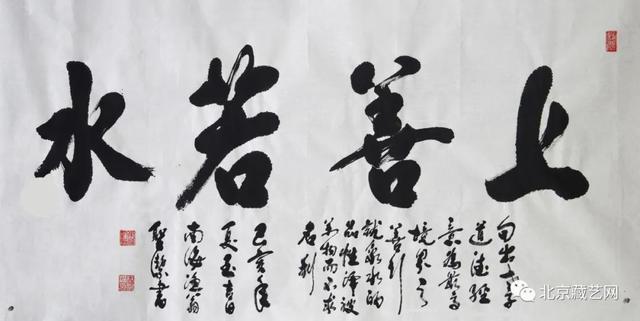 上善若水
句出老子
道德经
意为最高
境界之
善行
就象水的
品性泽被
万物而不求
名利
己亥年
夏至吉日
南海渔翁
圣洁书
北京藏艺网